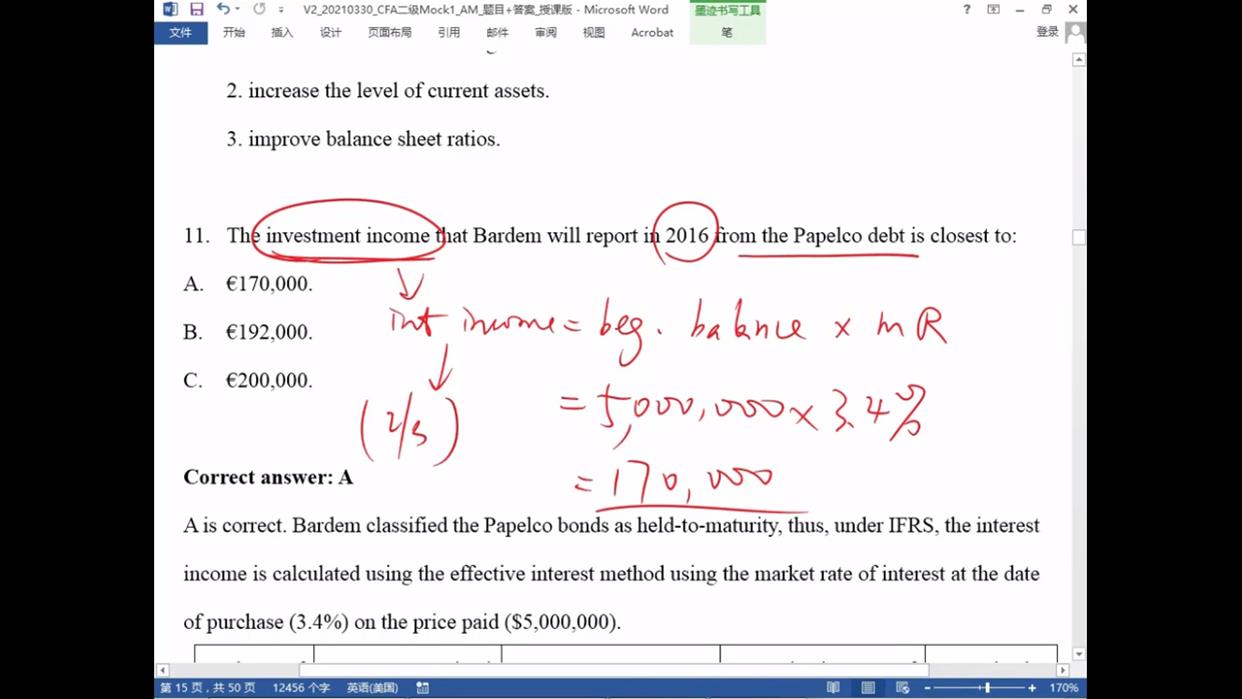 V2_20210330_CFA二级Mock1_AM_题目+答案_授课版 - Microsoft Word
墨迹书写工具
文件 开始 插入 设计 页面布局 引用 邮件 审阅 视图 Acrobat 笔 登录
2. increase the level of current assets.
3. improve balance sheet ratios.
11. The investment income that Bardem will report in 2016 from the Papelco debt is closest to:
A. €170,000.
B. €192,000.
C. €200,000.
int income = beg. balance x m R
= 5,000,000 x 3.4%
(I/S)
= 170,000
Correct answer: A
A is correct. Bardem classified the Papelco bonds as held-to-maturity, thus, under IFRS, the interest
income is calculated using the effective interest method using the market rate of interest at the date
of purchase (3.4%) on the price paid ($5,000,000).
第 15 页，共 50 页 12456 个字 英语(美国) 170%